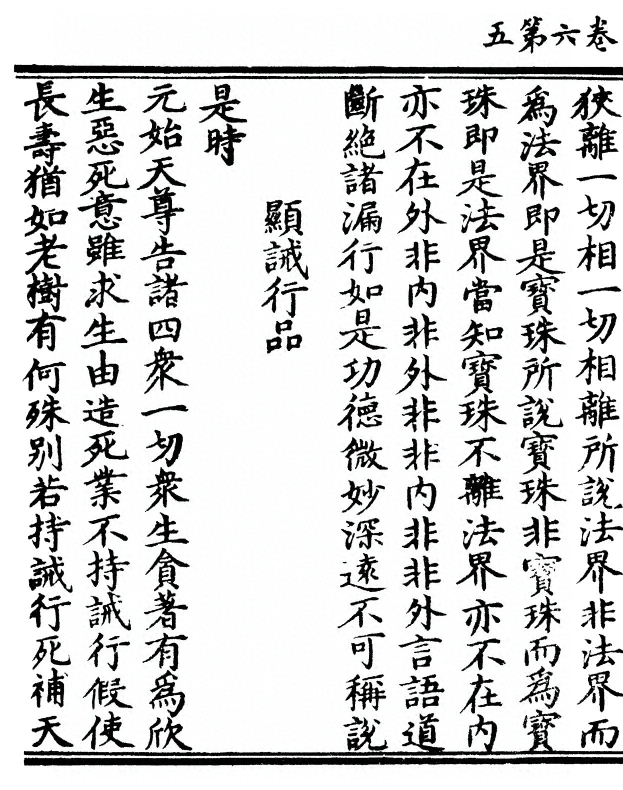 卷六第五
狹離一切相一切相離所說法界非法界而
爲法界即是寶珠所說寶珠非寶珠而爲寶
珠即是法界當知寶珠不離法界亦不在內
亦不在外非內非外非非內非非外言語道
斷絕諸漏行如是功德微妙深遠不可稱說
顯誡行品
是時
元始天尊告諸四衆一切衆生貪著有爲欣
生惡死意雖求生由造死業不持誡行假使
長壽猶如老樹有何殊別若持誡行死補天